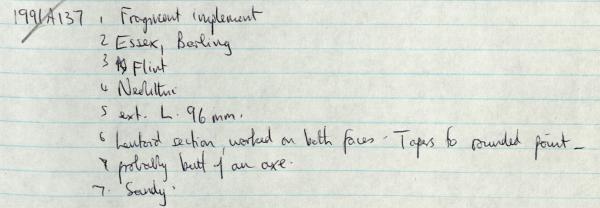 1991A137 1 Fragment implement
2 Essex, Barling
3 Flint
4 Neolithic
5 ext. L. 96 mm.
6 Lentoid section, worked on both faces. Tapers to rounded point –
probably butt of an axe.
7. Sandy.